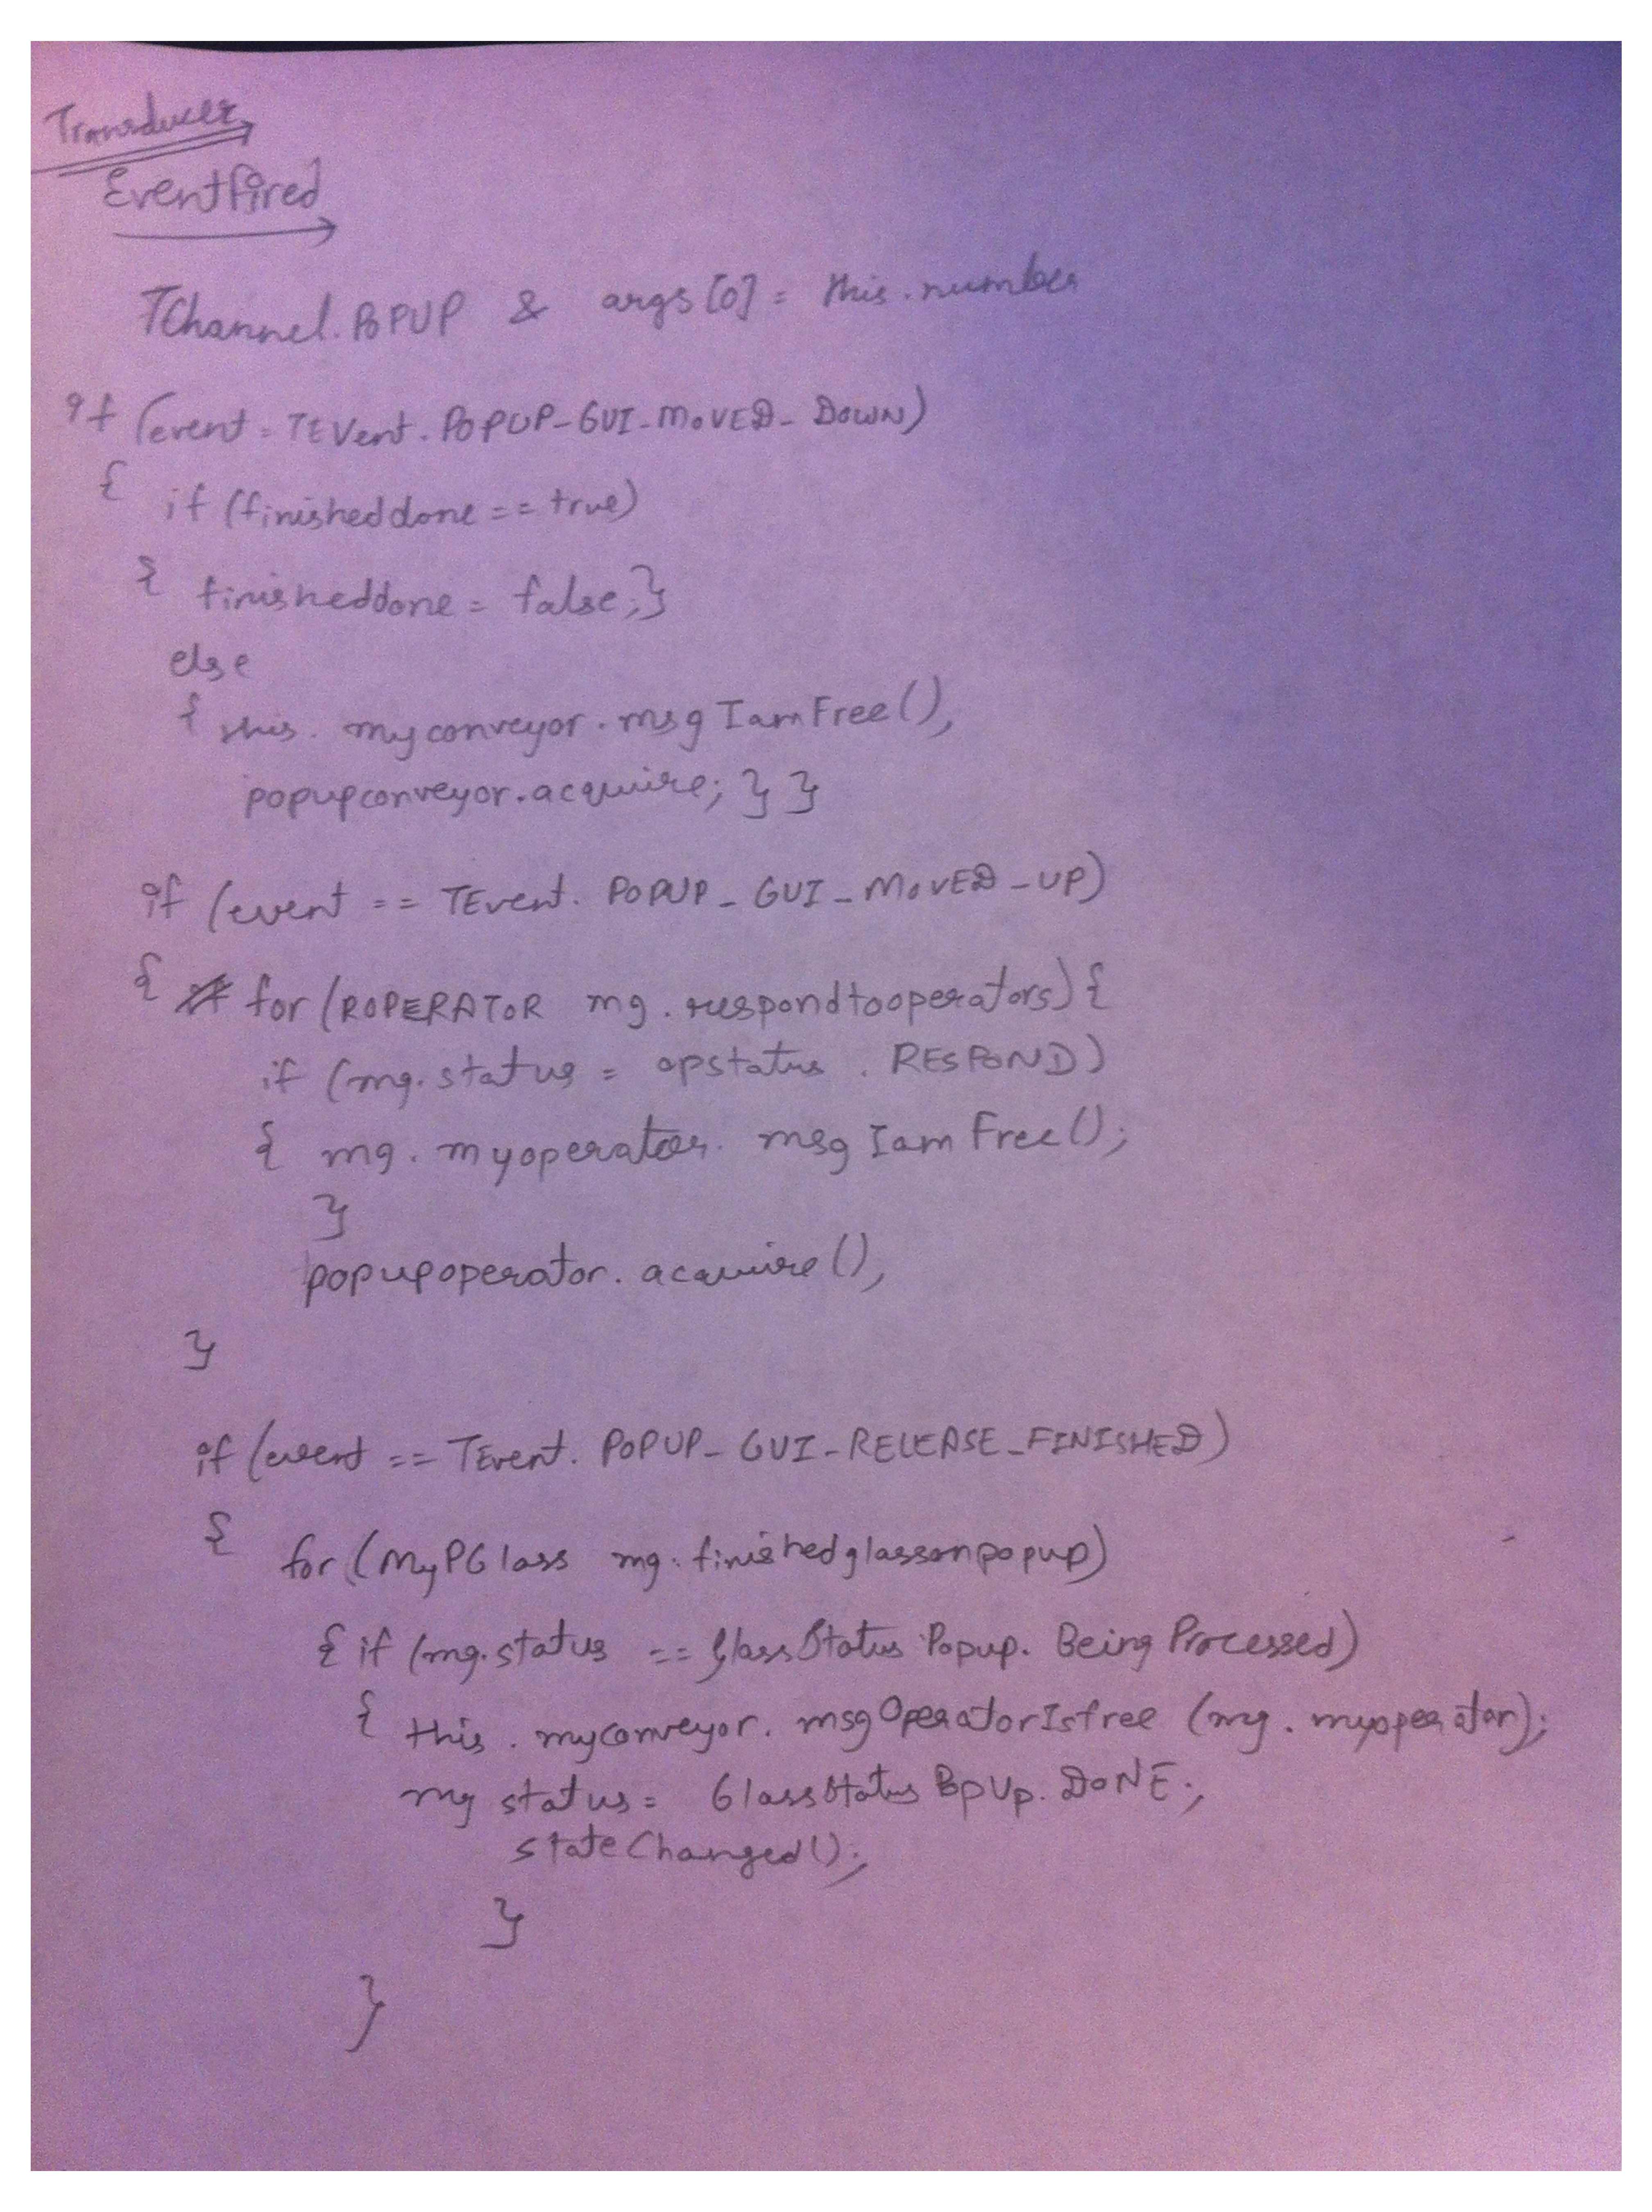 Transducer
Eventfired
TChannel.POPUP & args[0] = this.number
if (event = TEVent. POPUP-GUI-MOVED-DOWN)
{ if (finisheddone == true)
{ finisheddone = false;}
else
{ this. myconveyor. msg IamFree(),
popupconveyor.acquire; } }
if (event == TEvent. POPUP_GUI_MOVED_UP)
{ for (ROPERATOR mg. respondtooperators) {
if (mg. status = opstatus . RESPOND)
{ mg. myoperator. msg Iam Free();
}
popupoperator. acquire(),
}
if (event == TEvent. POPUP_ GUI-RELEASE_FINISHED)
{ for (MyPGlass mg. finishedglassonpopup)
{ if (mg. status == GlassStatus Popup. Being Processed)
{ this. myconveyor. msgOperatorIsfree (mg. myoperator);
mg status = GlassStatus PopUp. DONE;
stateChanged();
}
}